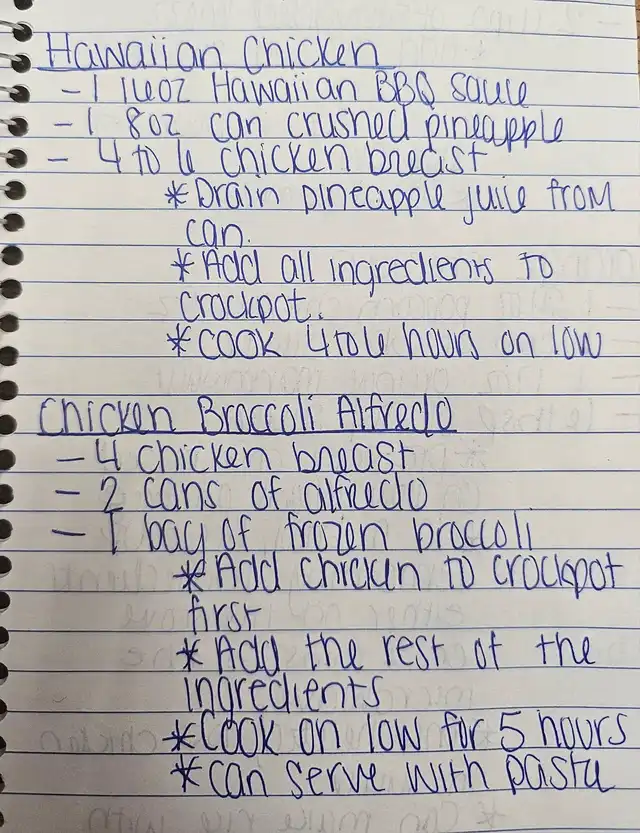 Hawaiian Chicken
- 1 16oz Hawaiian BBQ sauce
- 1 8oz can crushed pineapple
- 4 to 6 chicken breast
* Drain pineapple juice from
can.
* Add all ingredients to
crockpot.
* COOK 4 to 6 hours on low
Chicken Broccoli Alfredo
- 4 chicken breast
- 2 cans of alfredo
- 1 bag of frozen broccoli
* Add chicken to crockpot
first
* Add the rest of the
ingredients
* Cook on low for 5 hours
* can serve with pasta